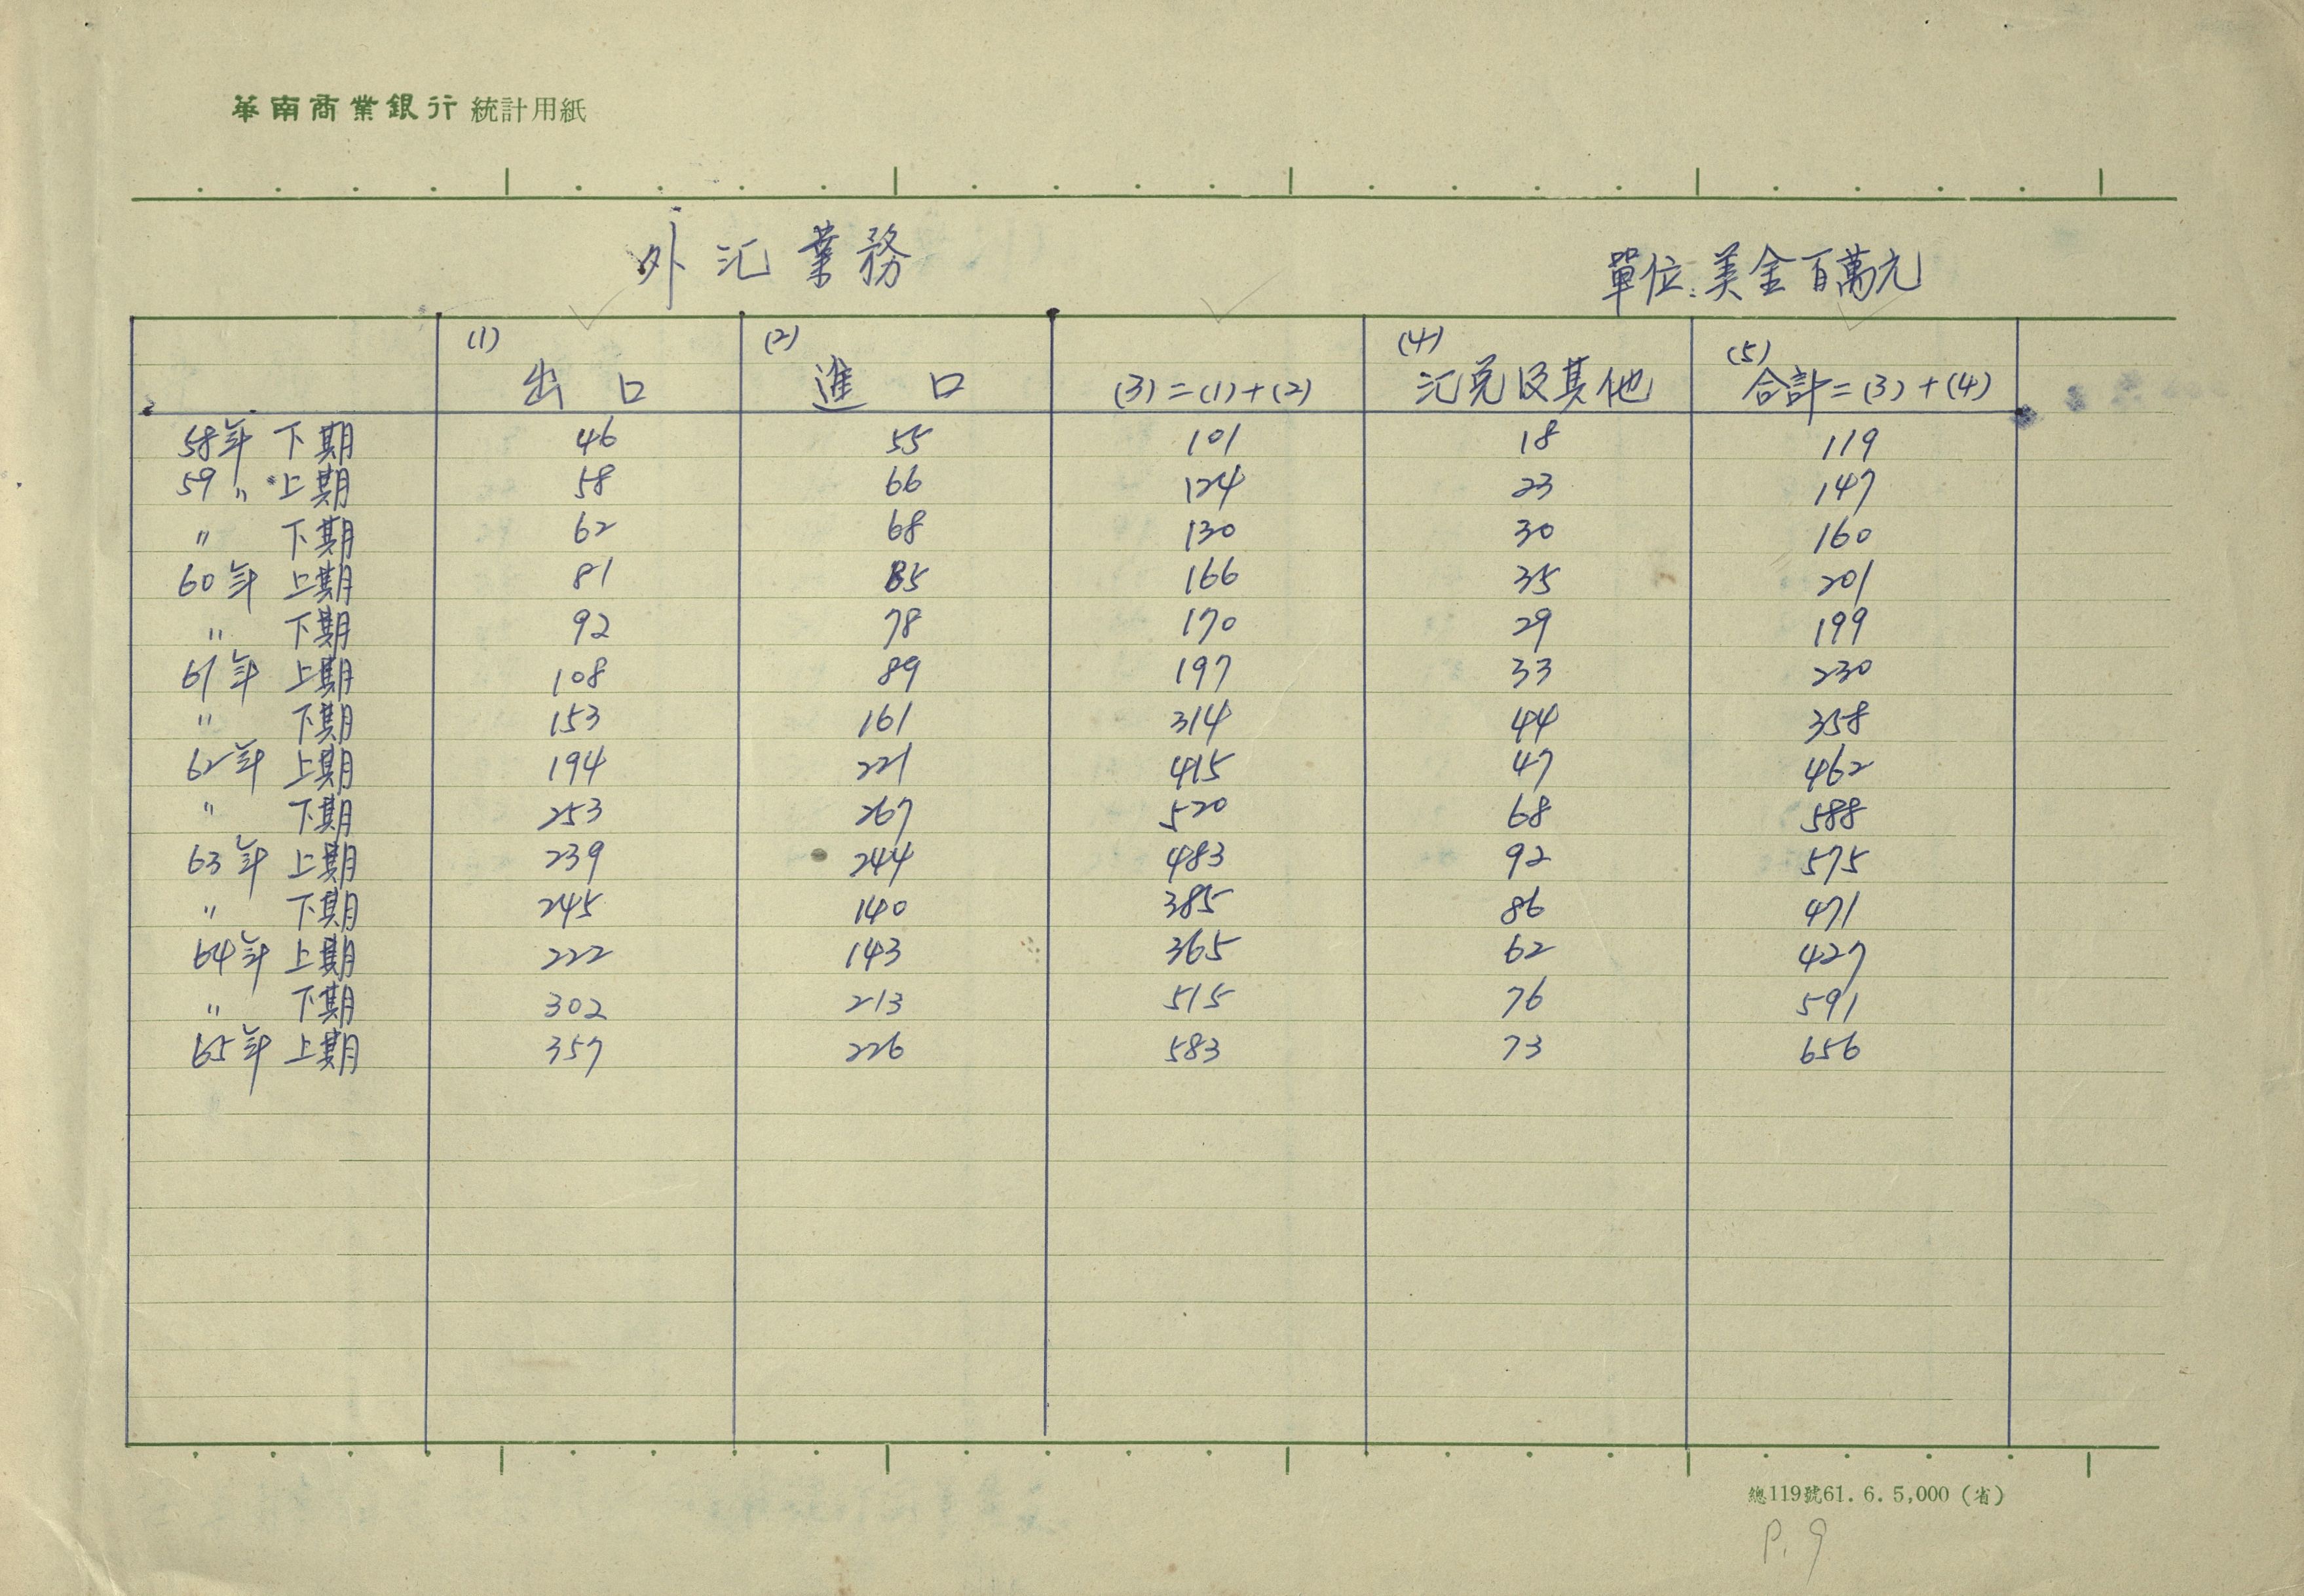 華南商業銀行 統計用紙
外汇業務
單位:美金百萬元
(1) 出口 (2) 進口 (3)=(1)+(2) (4) 汇兑及其他 (5) 合計=(3)+(4)
58年 下期 46 55 101 18 119
59 〃 上期 58 66 124 23 147
〃 下期 62 68 130 30 160
60年 上期 81 85 166 35 201
〃 下期 92 78 170 29 199
61年 上期 108 89 197 33 230
〃 下期 153 161 314 44 358
62年 上期 194 221 415 47 462
〃 下期 253 267 520 68 588
63年 上期 239 244 483 92 575
〃 下期 245 140 385 86 471
64年 上期 222 143 365 62 427
〃 下期 302 213 515 76 591
65年 上期 357 226 583 73 656
總119號61. 6. 5,000 (省)
P. 9